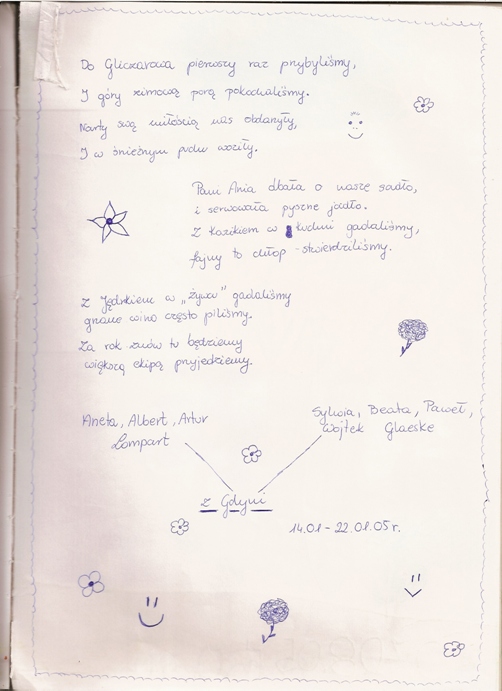 Do Gliczarowa pierwszy raz przybyliśmy,
I góry zimową porą pokochaliśmy.
Narty swą miłością nas obdarzyły,
I w śnieżnym puchu woziły.
Pani Ania dbała o nasze sadło,
i serwowała pyszne jadło.
Z Kazikiem w kuchni gadaliśmy,
fajny to chłop - stwierdziliśmy.
Z Jędrkiem w „żywu" gadaliśmy
grzane wino często piliśmy.
Za rok znów tu będziemy
większą ekipą przyjedziemy.
Aneta, Albert, Artur
Lompart
Sylwia, Beata, Paweł,
Wojtek Glaeske
z Gdyni
14.01 - 22.01.05 r.